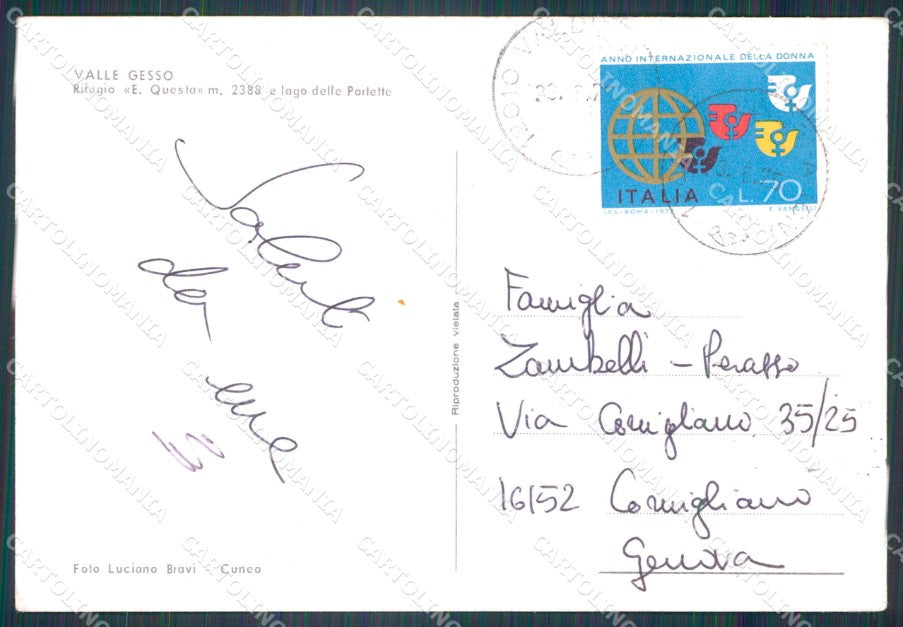 VALLE GESSO
Rifugio «E. Questa» m. 2388 e lago delle Portette
Saluti
da
Foto Luciano Bravi - Cuneo
Riproduzione vietata
ANNO INTERNAZIONALE DELLA DONNA
ITALIA L. 70
I.P.S. - ROMA - 1975 E. VANGELLI
Famiglia
Zambelli - Perasso
Via Cornigliano 35/25
16152 Cornigliano
Genova
CARTOLINOMANIA